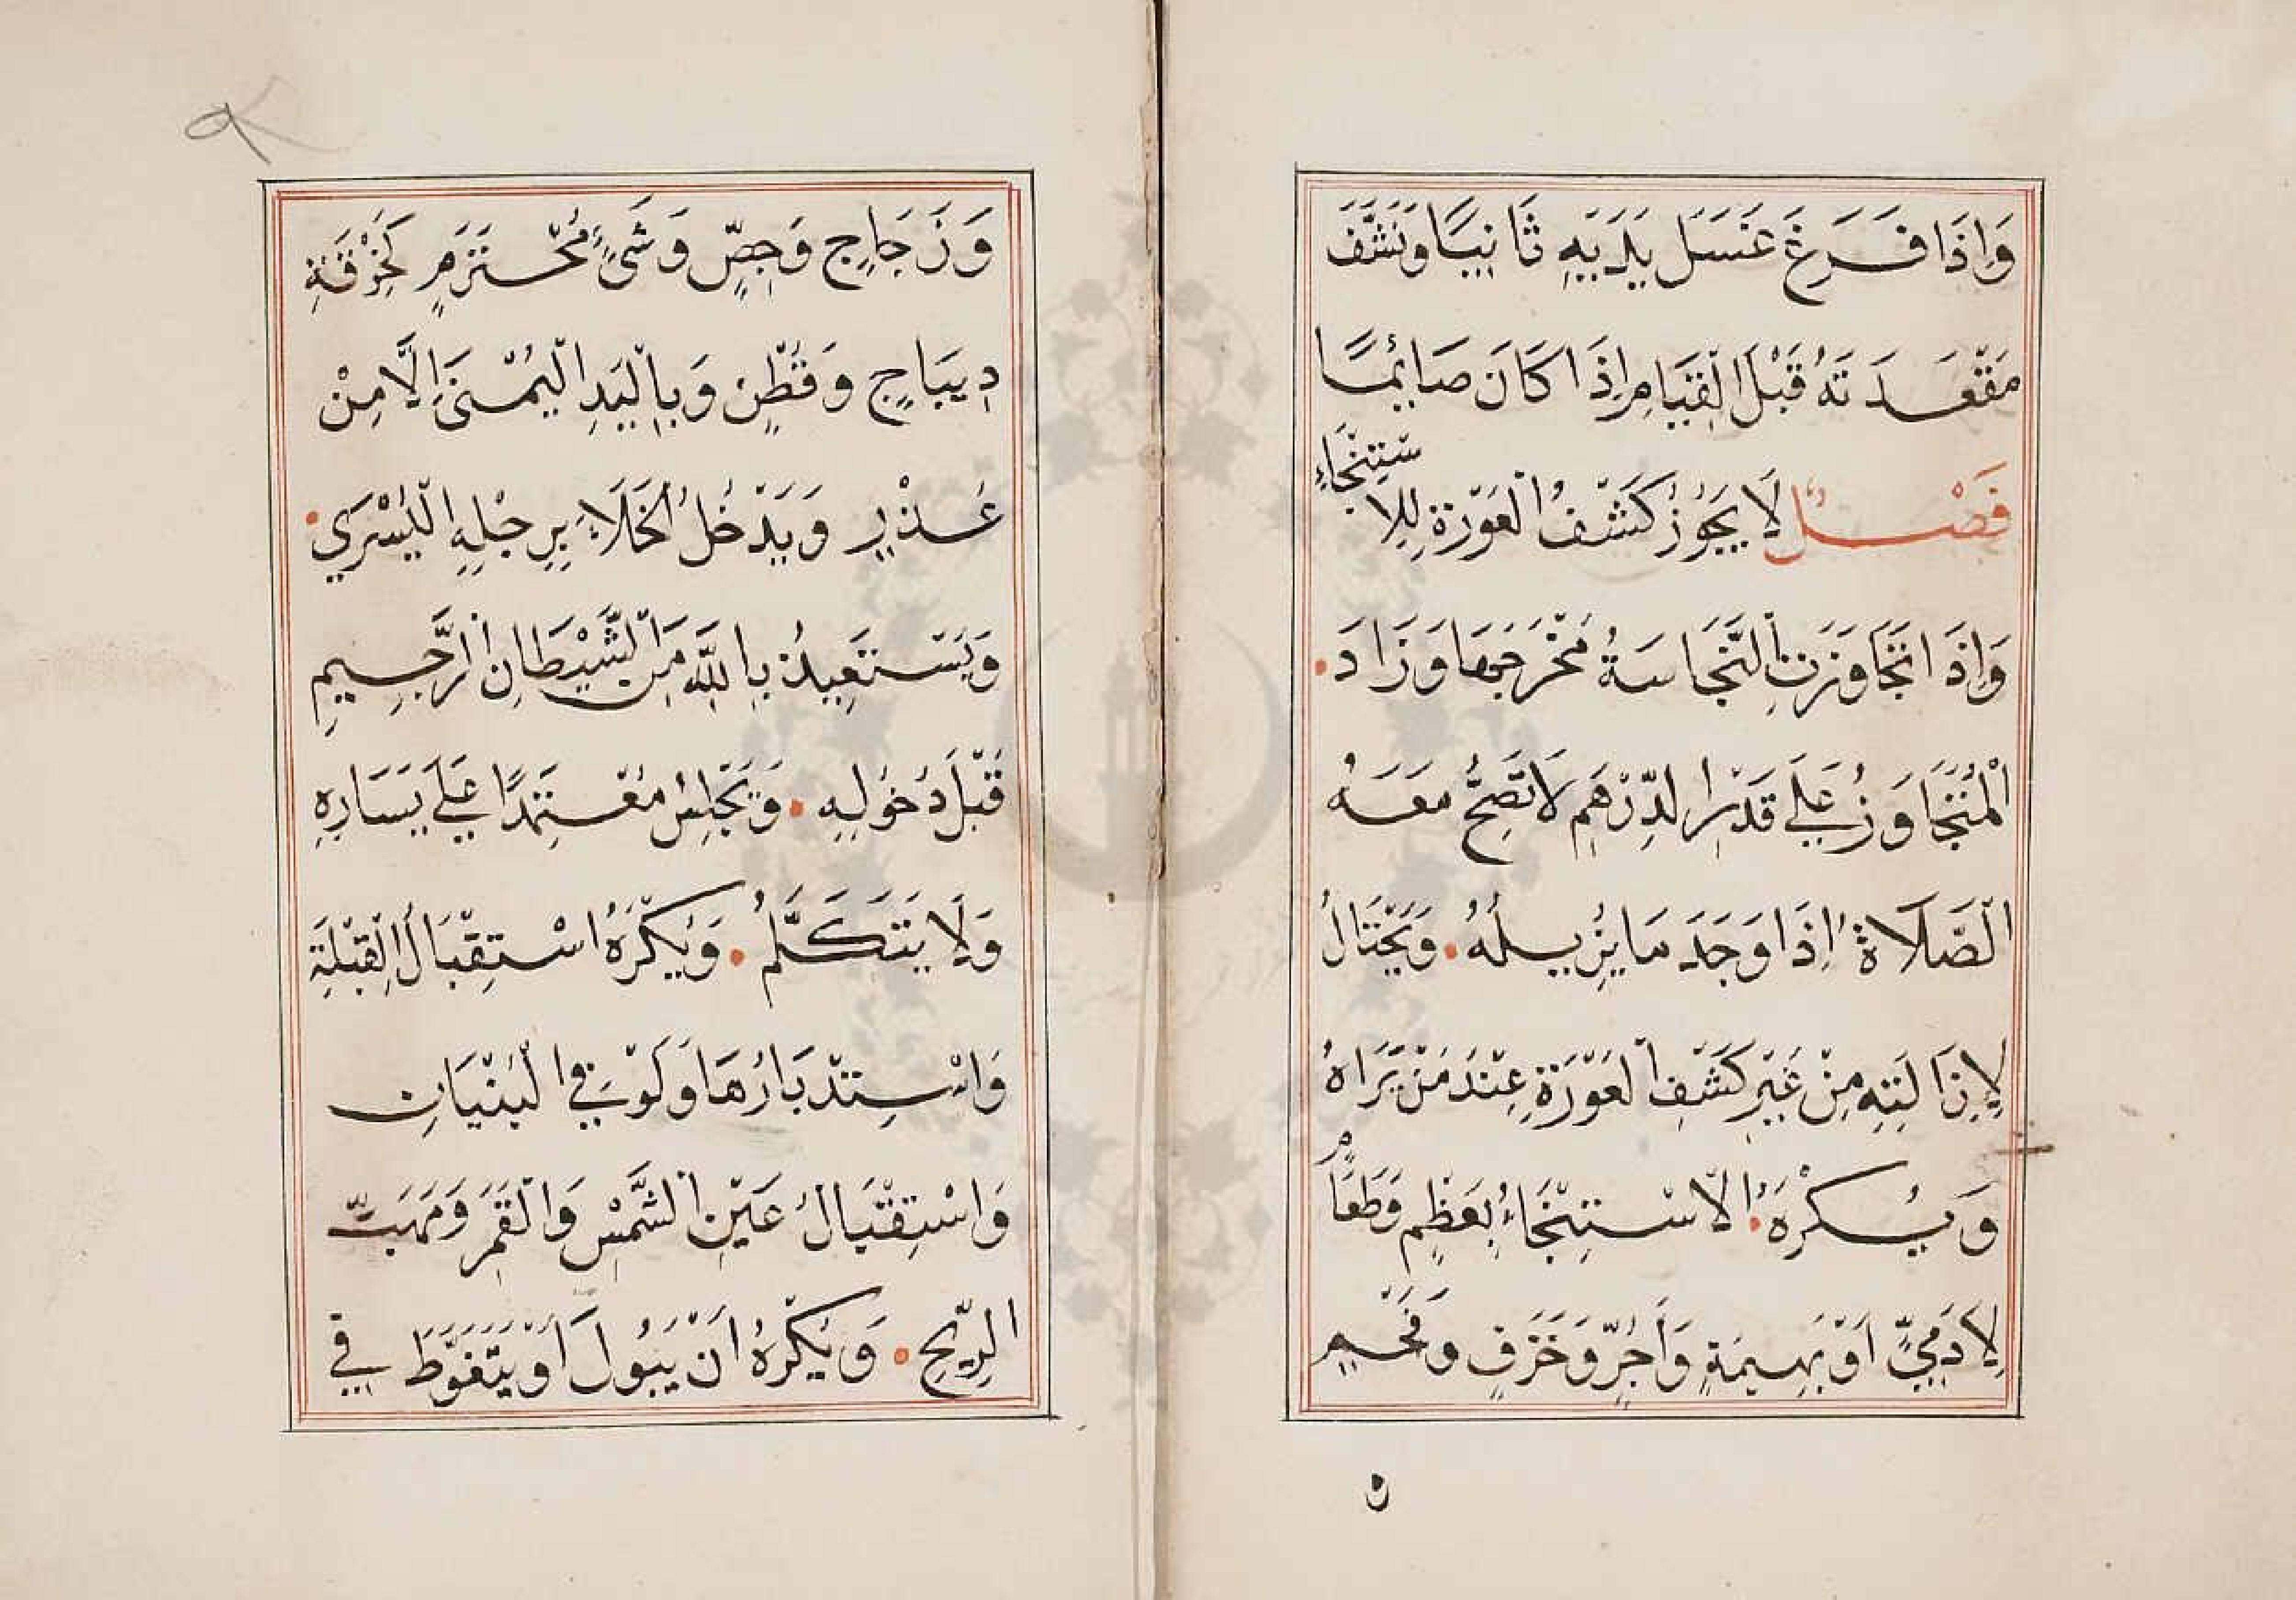 وَاِذَا فَرَغَ غَسَلَ يَدَيْهِ ثَانِيًا وَنَشَّفَ
مَقْعَدَتَهُ قَبْلَ الْقِيَامِ اِذَا كَانَ صَائِمًا
فَصْلٌ لَا يَجُوْزُ كَشْفُ الْعَوْرَةِ لِلِاسْتِنْجَاءِ
وَاِذَا تَجَاوَزَتِ النَّجَاسَةُ مَخْرَجَهَا وَزَادَ
الْمُتَجَاوِزُ عَلَى قَدْرِ الدِّرْهَمِ لَا تَصِحُّ مَعَهُ
الصَّلَاةُ اِذَا وَجَدَ مَا يُزِيلُهُ وَيَحْتَالُ
لِاِزَالَتِهِ مِنْ غَيْرِ كَشْفِ الْعَوْرَةِ عِنْدَ مَنْ يَرَاهُ
وَيُكْرَهُ الْاِسْتِنْجَاءُ بِعَظْمٍ وَطَعَامٍ
لِآدَمِيٍّ اَوْ بَهِيمَةٍ وَآجُرٍّ وَخَزَفٍ وَفَحْمٍ
وَزُجَاجٍ وَجِصٍّ وَشَيْءٍ مُحْتَرَمٍ كَخِرْقَةِ
دِيبَاجٍ وَقُطْنٍ وَبِالْيَدِ الْيُمْنَى اِلَّا مِنْ
عُذْرٍ وَيَدْخُلُ الْخَلَاءَ بِرِجْلِهِ الْيُسْرَي
وَيَسْتَعِيذُ بِاللّٰهِ مِنَ الشَّيْطَانِ الرَّجِيمِ
قَبْلَ دُخُوْلِهِ وَيَجْلِسُ مُعْتَمِدًا عَلَي يَسَارِهِ
وَلَا يَتَكَلَّمُ وَيُكْرَهُ اسْتِقْبَالُ الْقِبْلَةِ
وَاسْتِدْبَارُهَا وَلَوْ فِي الْبُنْيَانِ
وَاسْتِقْبَالُ عَيْنِ الشَّمْسِ وَالْقَمَرِ وَمَهَبِّ
الرِّيْحِ وَيُكْرَهُ اَنْ يَبُولَ اَوْ يَتَغَوَّطَ فِي